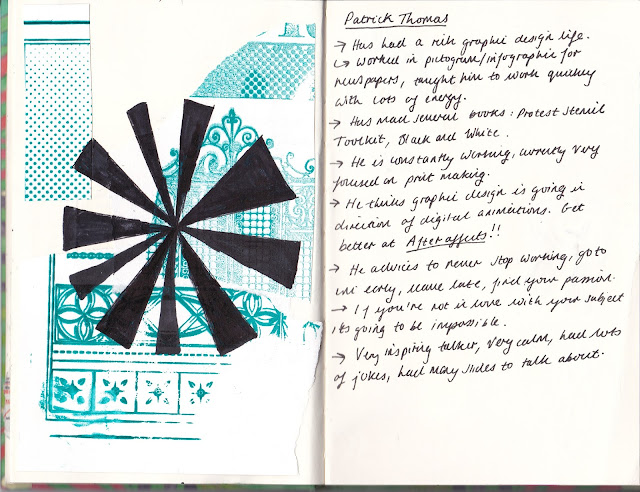 Patrick Thomas
→ Has had a rich graphic design life.
↳ Worked in pictogram/infographic for
newspapers, taught him to work quickly
with lots of energy.
→ Has mad several books: Protest Stencil
Toolkit, Black and White.
→ He is constantly working, currently very
focused on print making.
→ He thinks graphic design is going in
direction of digital animations. Get
better at After affects!!
→ He advices to never stop working, go to
uni early, leave late, find your passion.
→ If you're not in love with your subject
its going to be impossible.
→ Very inspiring talker, very calm, had lots
of jokes, had many slides to talk about.